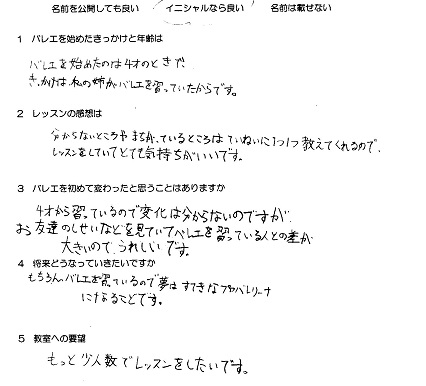 名前を公開しても良い　イニシャルなら良い　名前は載せない
1　バレエを始めたきっかけと年齢は
バレエを始めたのは4才のときで
きっかけは私の姉がバレエを習っていたからです。
2　レッスンの感想は
分からないところやまちがっているところはていねいに1つ1つ教えてくれるので、
レッスンをしていてとても気持ちがいいです。
3　バレエを初めて変わったと思うことはありますか
4才から習っているので変化は分からないのですが
お友達のしせいなどを見ていてバレエを習っている人との差が
大きいので、うれしいです。
4　将来どうなっていきたいですか
もちろんバレエを習っているので夢はすてきなプロバレリーナ
になることです。
5　教室への要望
もっと少人数でレッスンをしたいです。